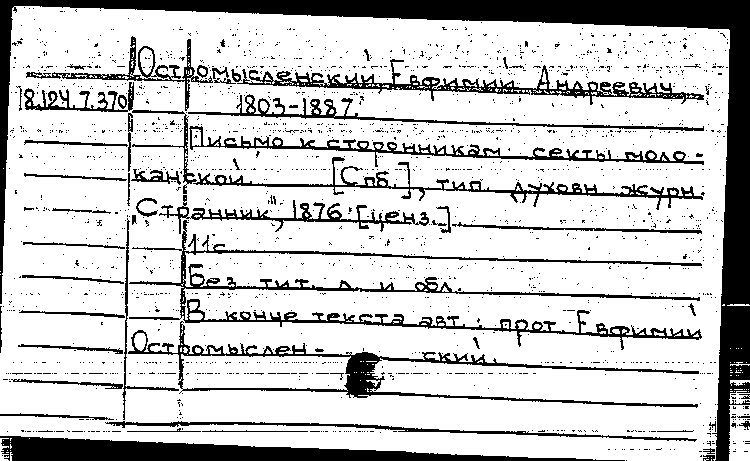 Остромысленский, Евфимий Андреевич,
18.124.7.370 1803-1887.
Письмо к сторонникам секты моло-
канской. [Спб.], тип. духовн. журн.
"Странник", 1876 [ценз.].
11 с
Без тит. л. и обл.
В конце текста авт.: прот. Евфимий
Остромыслен- ский.